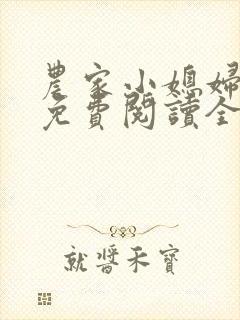 農家小媳婦
免費閱讀全
就醬禾寶